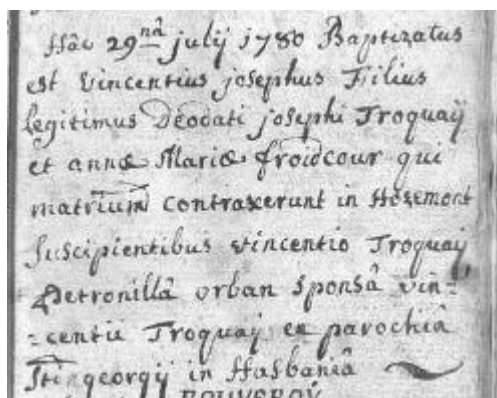 Hâc 29nâ julij 1780 Baptizatus
est Vincentius josephus Filius
legitimus Deodati josephi Troquaij
et annæ Mariæ froidcour qui
matrium contraxerunt in Hozemont
Suscipientibus vincentio Troquaij
Petronillâ orban sponsâ vin=
=centii Troquaij ex parochiâ
Sti georgij in Hasbaniâ
ROUVEROÿ